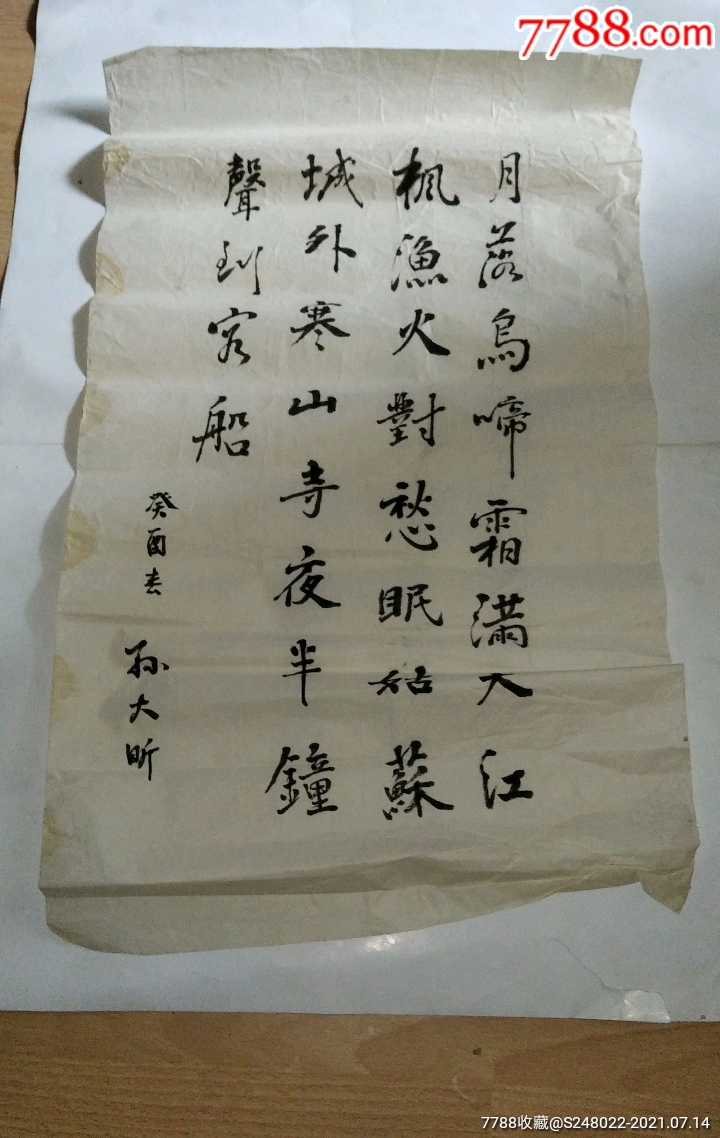 7788.com
月落烏啼霜滿天江
楓漁火對愁眠姑蘇
城外寒山寺夜半鐘
聲到客船
癸酉春 孙大昕
7788收藏@S248022-2021.07.14